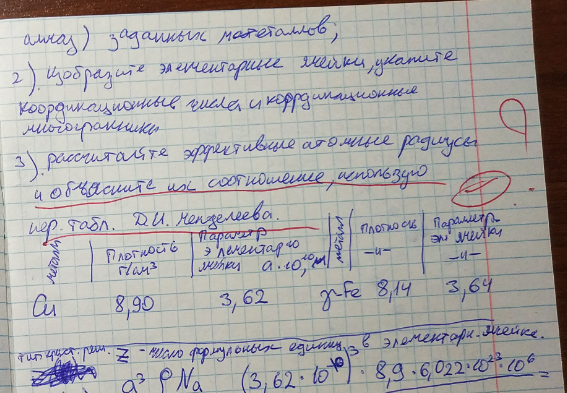 алмаз) заданных мететаллов;
2). Изобразите элементарные ячейки, укажите
координационные числа и коррдинационные
многогранники
3). рассчитайте эффективные атомные радиусы
и объясните их соотношение, использую
пер. табл. Д.И. Менделеева.
металл Плотность г/см³ Параметр элементарно ячейки a·10⁻¹⁰, м металл Плотность -//- Параметр эл ячейки -//-
Cu 8,90 3,62 γ-Fe 8,14 3,64
тип крист. реш. Z - число формульных единиц в элементарн. ячейке.
a³ ρ Na (3,62·10⁻¹⁰)³ · 8,9·6,022·10²³·10⁶ =